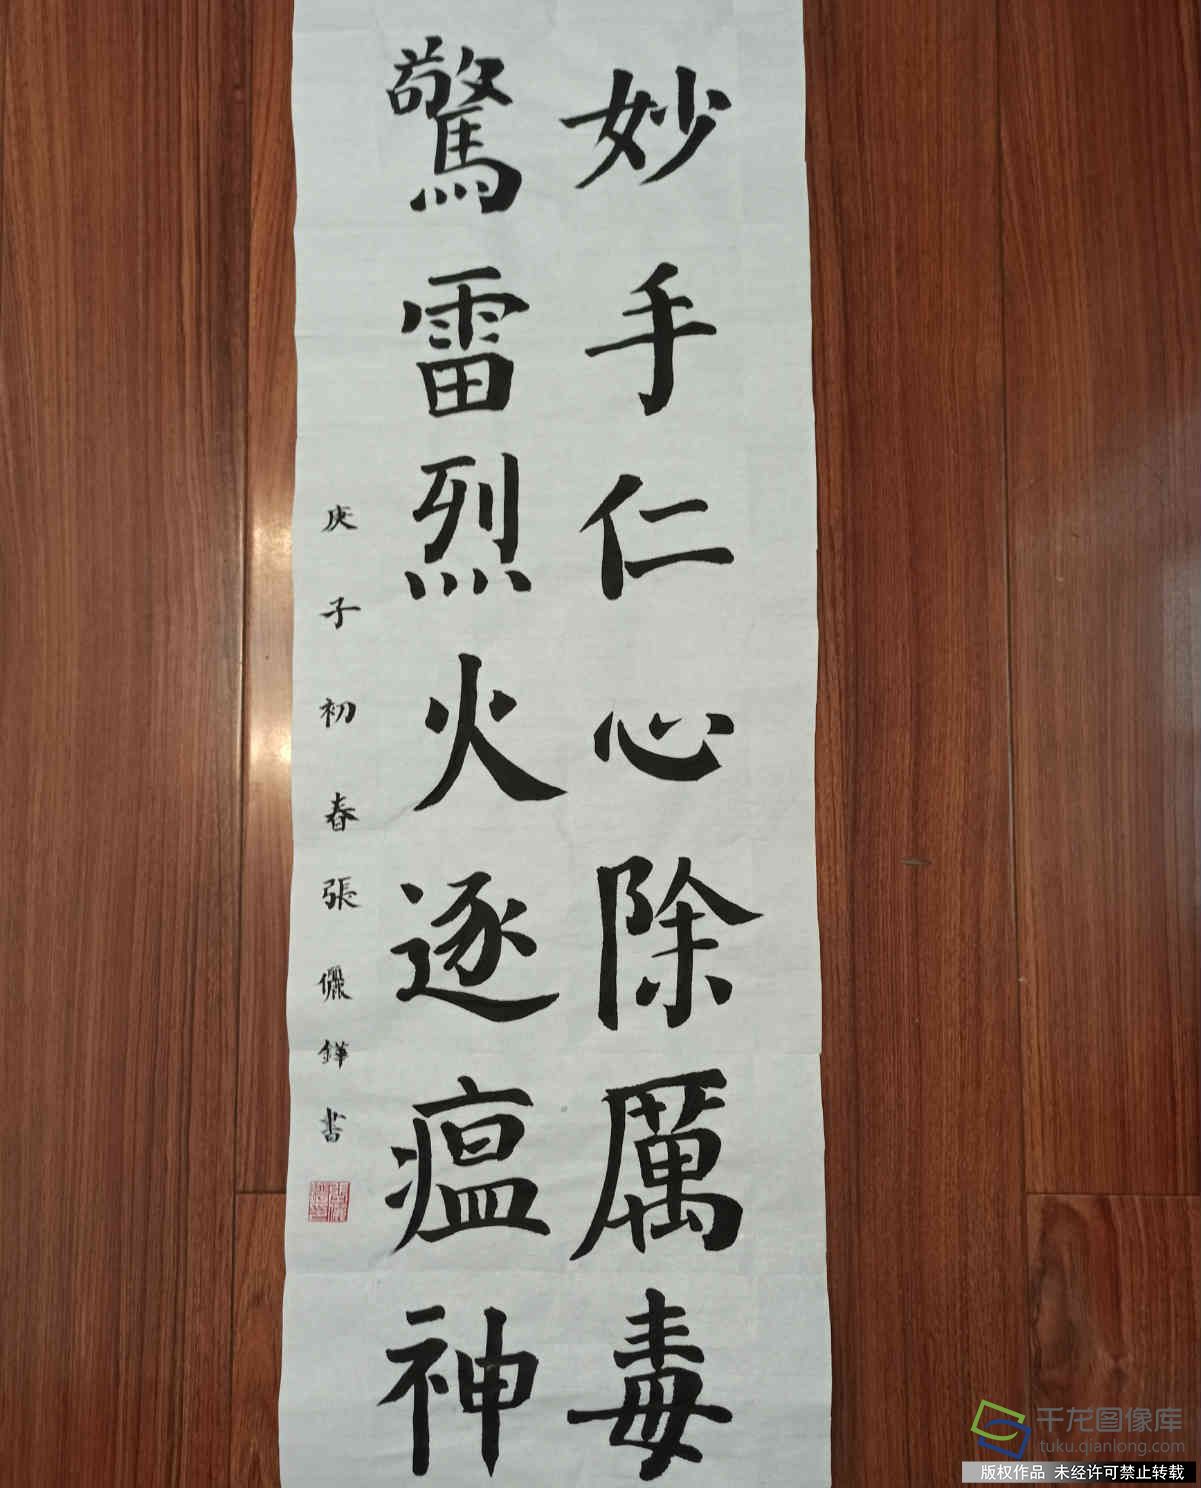 妙手仁心除厲毒
驚雷烈火逐瘟神
庚子初春張儷鏵書
千龙图像库
tuku.qianlong.com
版权作品 未经许可禁止转载